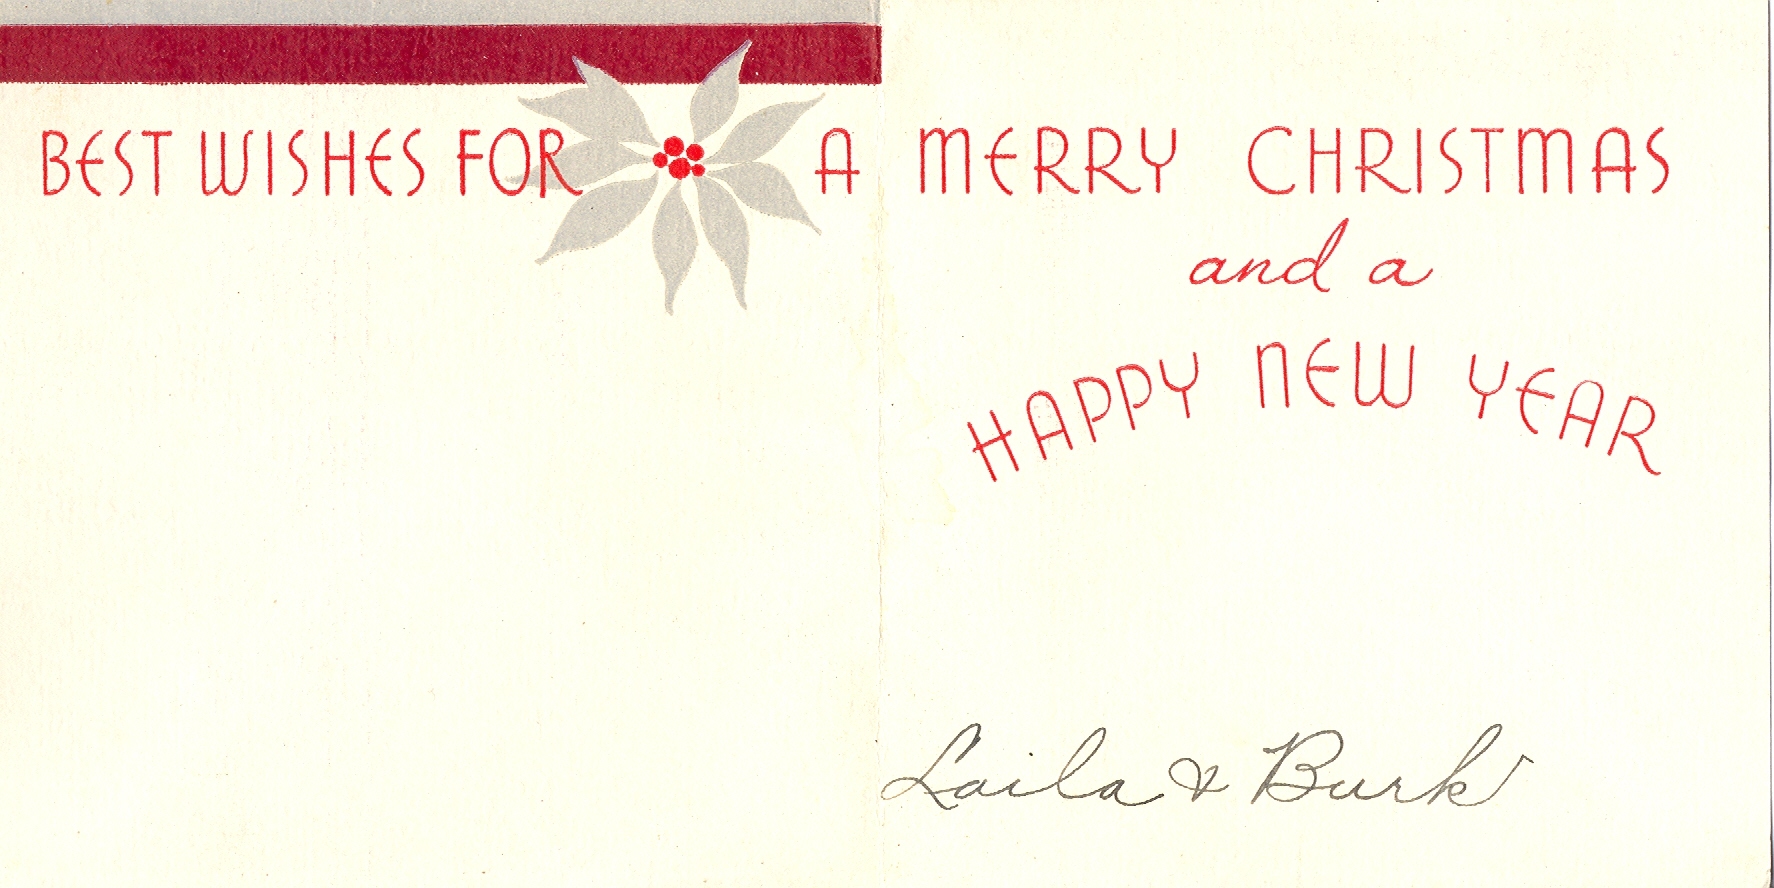 BEST WISHES FOR A MERRY CHRISTMAS
and a
HAPPY NEW YEAR
Laila & Burk